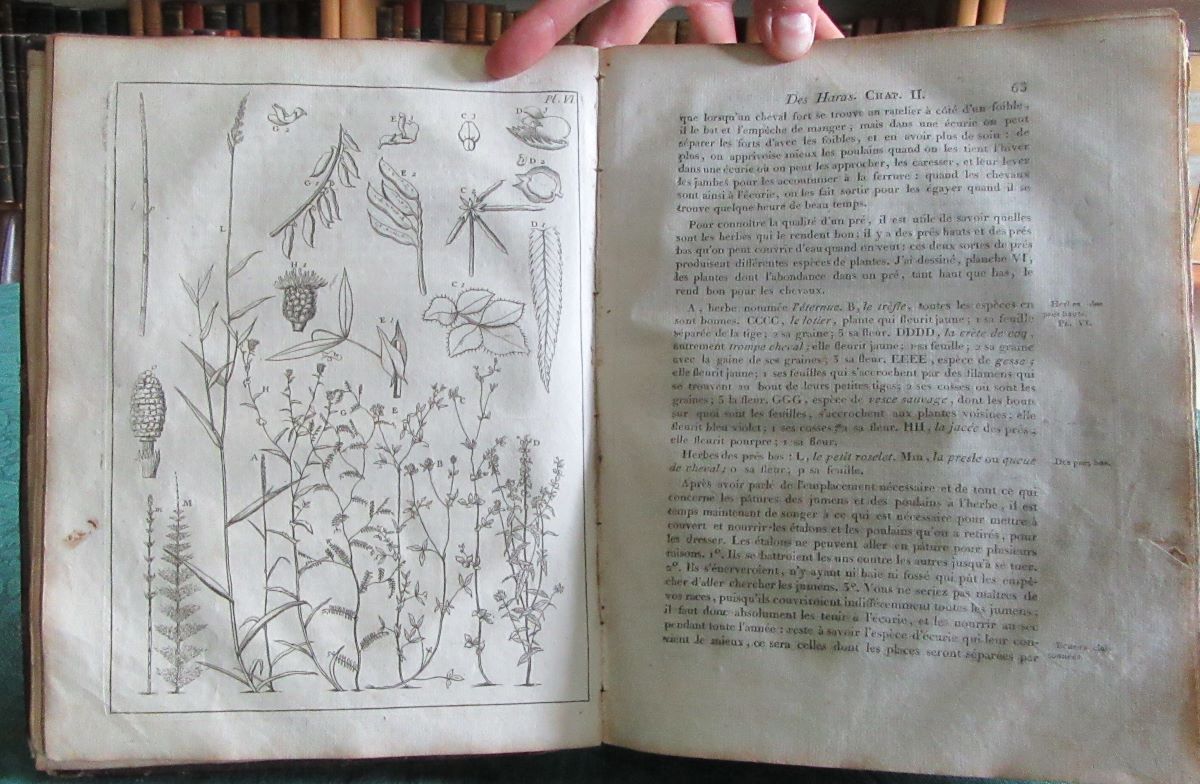 Pl. VI
G 2
E 3
C 3
D 3
D 2
G 1
E 2
C 2
D 1
L
H 2
C 1
E 1
H
G
E
C
A
B
D
M
Des Haras. CHAP. II.
63
que lorsqu'un cheval fort se trouve au ratelier à côté d'un foible,
il le bat et l'empêche de manger ; mais dans une écurie on peut
séparer les forts d'avec les foibles, et en avoir plus de soin : de
plus, on apprivoise mieux les poulains quand on les tient l'hiver
dans une écurie où on peut les approcher, les caresser, et leur lever
les jambes pour les accoutumer à la ferrure : quand les chevaux
sont ainsi à l'écurie, on les fait sortir pour les égayer quand il se
trouve quelque heure de beau temps.
Pour connoître la qualité d'un pré, il est utile de savoir quelles
sont les herbes qui le rendent bon ; il y a des prés hauts et des prés
bas qu'on peut couvrir d'eau quand on veut : ces deux sortes de prés
produisent différentes espèces de plantes. J'ai dessiné, planche VI,
les plantes dont l'abondance dans un pré, tant haut que bas, le
rend bon pour les chevaux.
A, herbe nommée l'éternue. B, le trèfle, toutes les espèces en
sont bonnes. CCCC, le lotier, plante qui fleurit jaune ; 1 sa feuille
séparée de la tige ; 2 sa graine ; 3 sa fleur. DDDD, la crête de coq,
autrement trompe cheval ; elle fleurit jaune ; 1 sa feuille ; 2 sa graine
avec la gaîne de ses graines ; 3 sa fleur. EEEE, espèce de gesse ;
elle fleurit jaune ; 1 ses feuilles qui s'accrochent par des filamens qui
se trouvent au bout de leurs petites tiges ; 2 ses cosses où sont les
graines ; 3 la fleur. GGG, espèce de vesce sauvage, dont les bouts
sur quoi sont les feuilles, s'accrochent aux plantes voisines ; elle
fleurit bleu violet ; 1 ses cosses ; 2 sa fleur. HH, la jacée des prés ;
elle fleurit pourpre ; 1 sa fleur.
Herbes des prés bas : L, le petit roselet. Mm, la presle ou queue
de cheval ; o sa fleur ; p sa feuille.
Après avoir parlé de l'emplacement nécessaire et de tout ce qui
concerne les pâtures des jumens et des poulains à l'herbe, il est
temps maintenant de songer à ce qui est nécessaire pour mettre à
couvert et nourrir les étalons et les poulains qu'on a retirés, pour
les dresser. Les étalons ne peuvent aller en pâture pour plusieurs
raisons. 1°. Ils se battroient les uns contre les autres jusqu'à se tuer.
2°. Ils s'énerveroient, n'y ayant ni haie ni fossé qui pût les empê-
cher d'aller chercher les jumens. 3°. Vous ne seriez pas maîtres de
vos races, puisqu'ils couvriroient indifféremment toutes les jumens ;
il faut donc absolument les tenir à l'écurie, et les nourrir au sec
pendant toute l'année : reste à savoir l'espèce d'écurie qui leur con-
vient le mieux, ce sera celles dont les places seront séparées par
Herbes des
prés hauts.
Pl. VI.
Des prés bas.